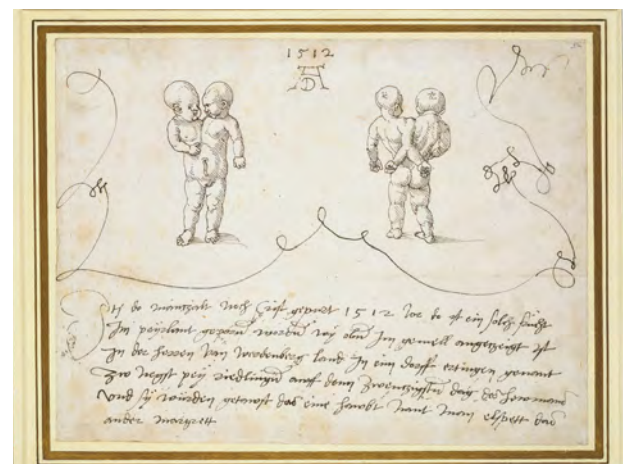 1512
AD
Itz do mantzalt noch Crist gepurt 1512 Jor do ist ein solch frücht
Im peyrlant geporn wordn wy oben Im gemell angetzeigt ist
In der herren von werdenberg land In eim dorff ertingen genant
zw negst pey riedlingen auff denn zwentzigsten dag des
vnd sy würden getaufft das eine haubt nant man elspett das
ander margrett